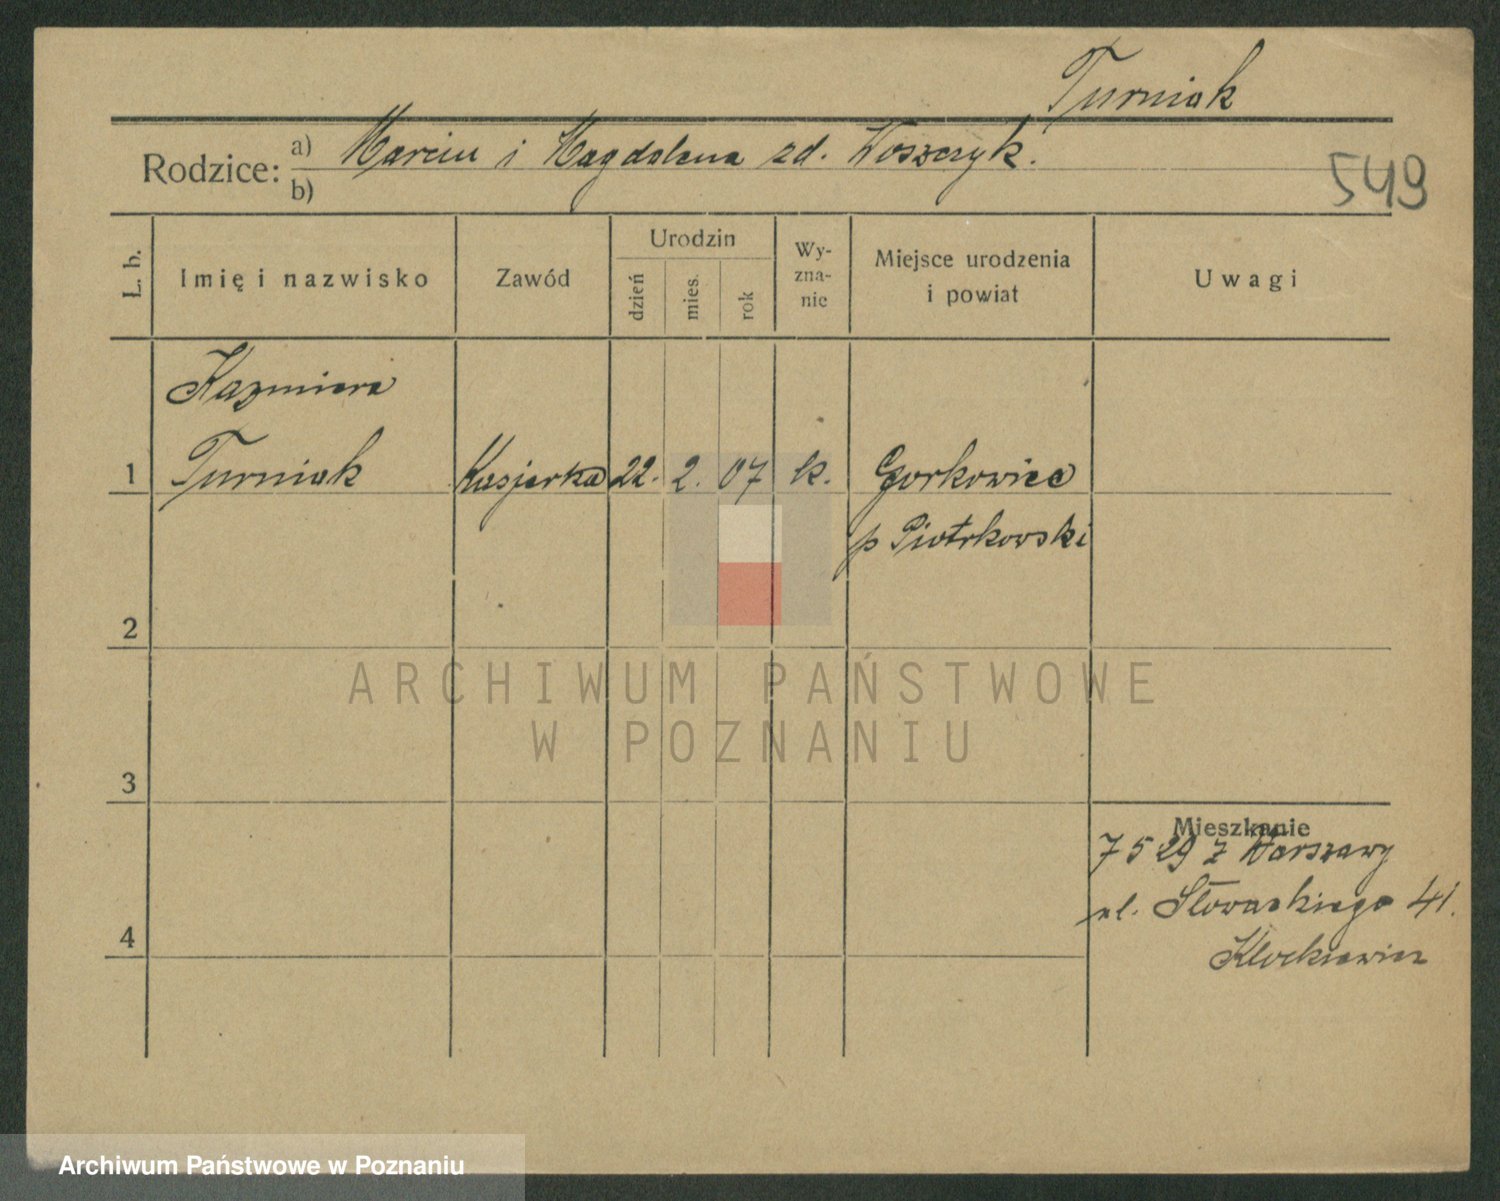 Turniak
Rodzice: a) Marcin i Magdalena zd. Woszczyk.
b)
549
L. b.
Imię i nazwisko
Zawód
Urodzin
dzień
mies.
rok
Wy-
zna-
nie
Miejsce urodzenia
i powiat
Uwagi
Kazmiera
1 Turniak Kasjerka 22. 2. 07 k. Gorkowice
p Piotrkowski
2
3
4
Mieszkanie
7 5 29 z Warszawy
ul. Słowackiego 41.
Klockiewicz
ARCHIWUM PAŃSTWOWE
W POZNANIU
Archiwum Państwowe w Poznaniu